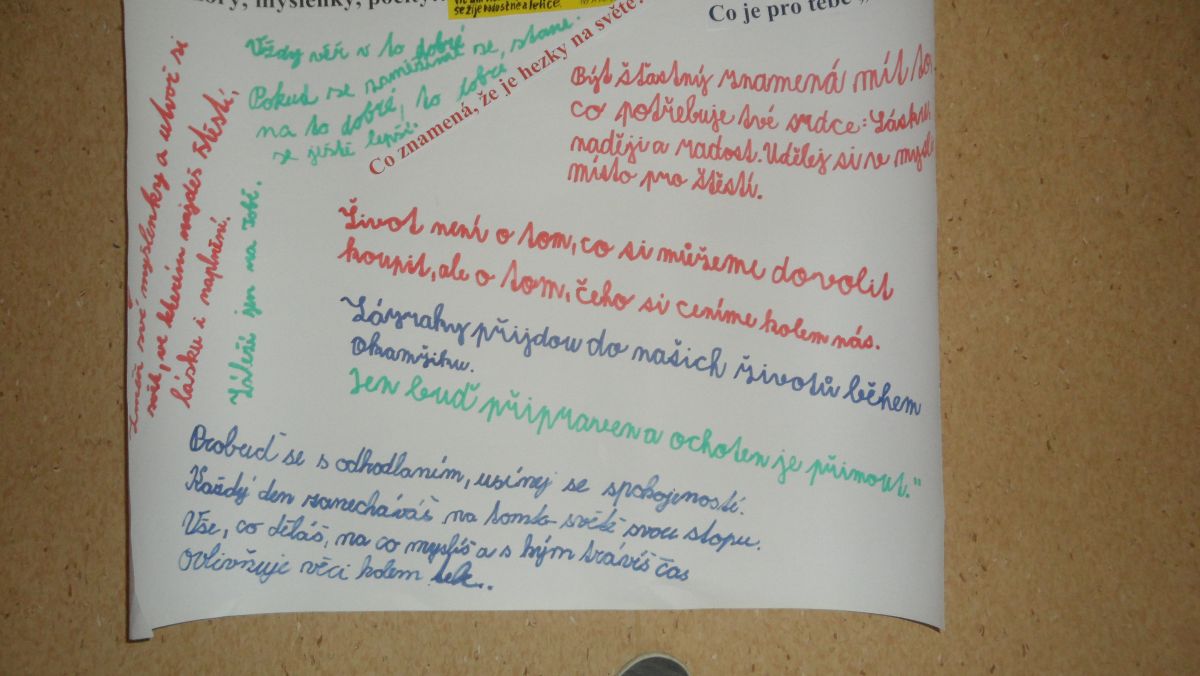 myšlenky, pocity
se žije radostně a lehce.
Co je pro tebe
Co znamená, že je hezky na světě?
Vždy věř v to dobré
se, stane.
Pokud se zaměříme
na to dobré, to dobré
se jistě lepší.
Být šťastný znamená mít to,
co potřebuje tvé srdce: Lásku,
naději a radost. Udělej si ve mysli
místo pro štěstí.
své myšlenky a utvoř si
svět, ve kterém najdeš štěstí,
lásku i naplnění.
Záleží jen na Tobě.
Život není o tom, co si můžeme dovolit
koupit, ale o tom, čeho si ceníme kolem nás.
Zázraky přijdou do našich životů během
okamžiku.
Jen buď připraven a ochoten je přimout."
Probuď se s odhodlaním, usínej se spokojeností.
Každý den zanecháváš na tomto světě svou stopu.
Vše, co děláš, na co myslíš a s kým trávíš čas
ovlivňuje věci kolem tebe..